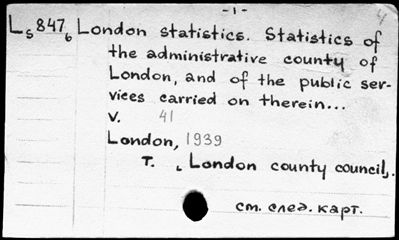 -1-
4
Ls847б London statistics. Statistics of
the administrative county of
London, and of the public ser-
vices carried on therein...
V. 41
London, 1939
T. [London county council].
см. след. карт.